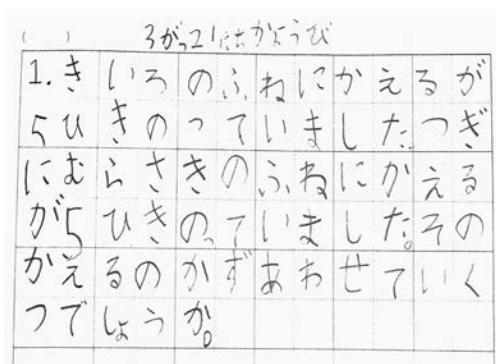 ( ) 3がつ21にちかようび
1.きいろのふねにかえるが
5ひきのっていました。つぎ
にむらさきのふねにかえる
が5ひきのっていました。その
かえるのかずあわせていく
つでしょうか。